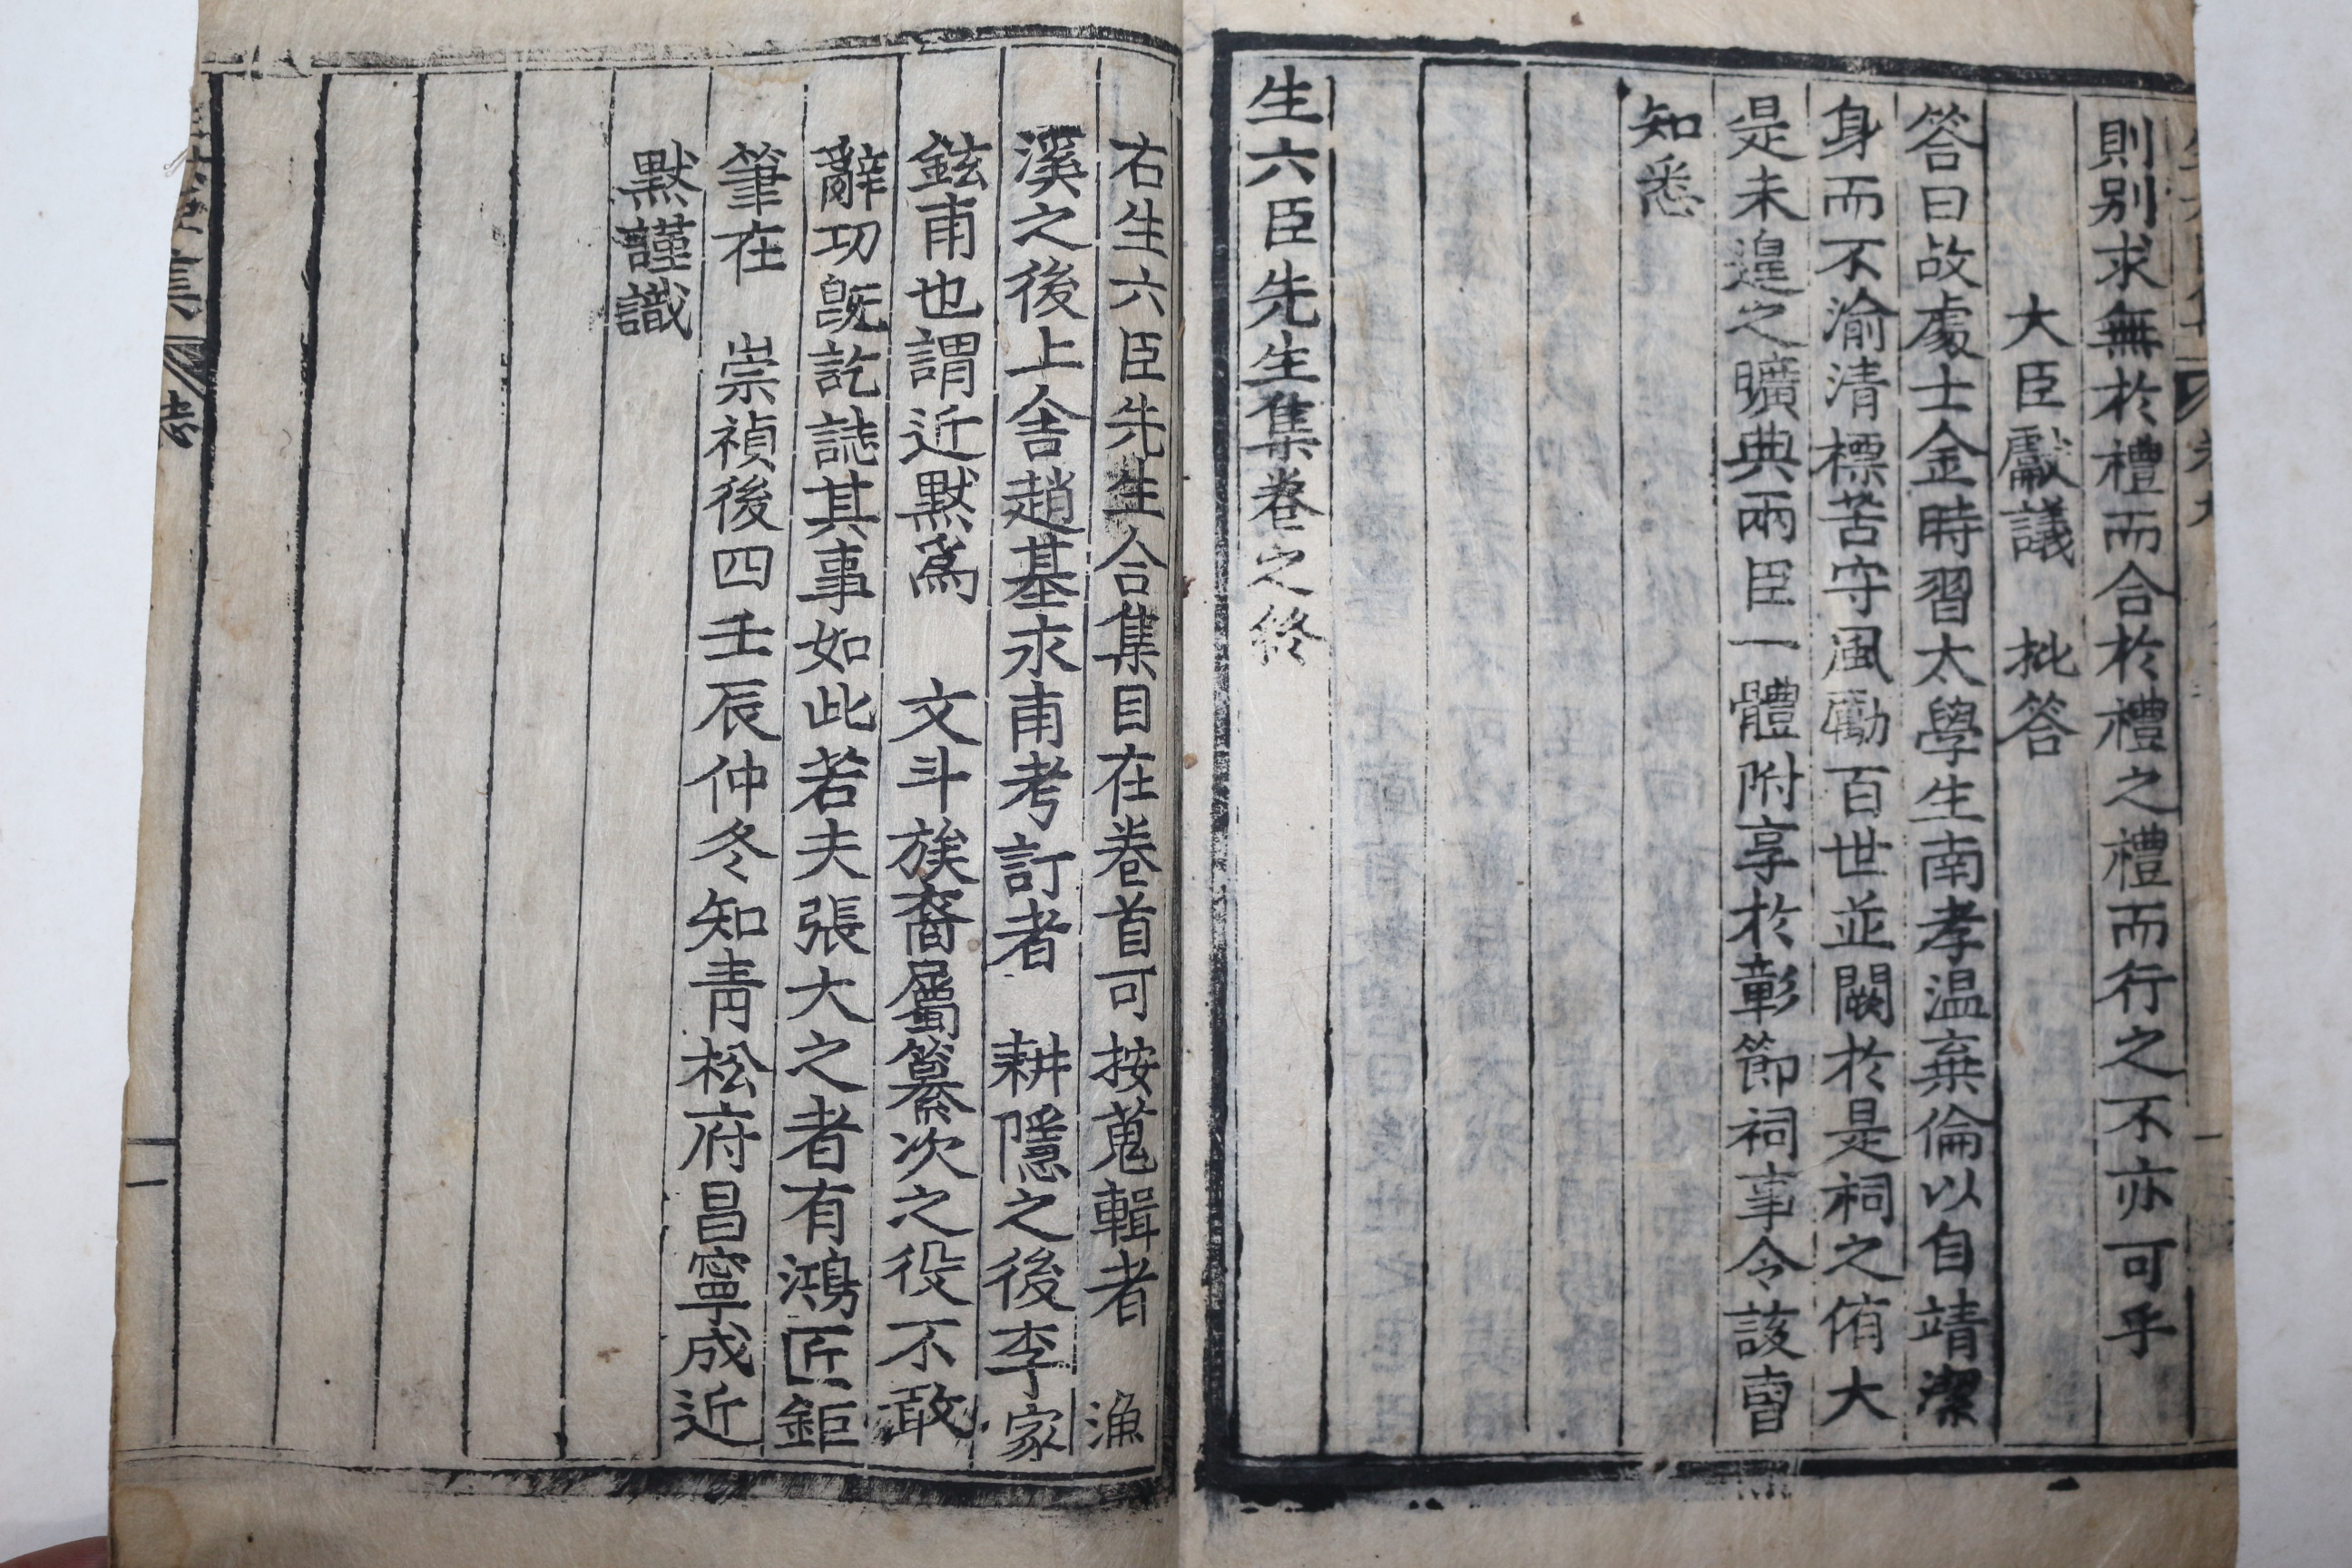 則别求無於禮而合於禮之禮而行之不亦可乎
大臣獻議 批答
答曰故處士金時習太學生南孝温棄倫以自靖潔
身而不渝清標苦守風勵百世並闕於是祠之侑大
是未遑之曠典兩臣一體附享於彰節祠事令該曺
知悉
生六臣先生集卷之終
右生六臣先生合集目在卷首可按蒐輯者 漁
溪之後上舍趙基永甫考訂者 耕隱之後李家
鉉甫也謂近默爲 文斗族裔屬纂次之役不敢
辭功旣訖誌其事如此若夫張大之者有鴻匠鉅
筆在 崇禎後四壬辰仲冬知靑松府昌寧成近
默謹識